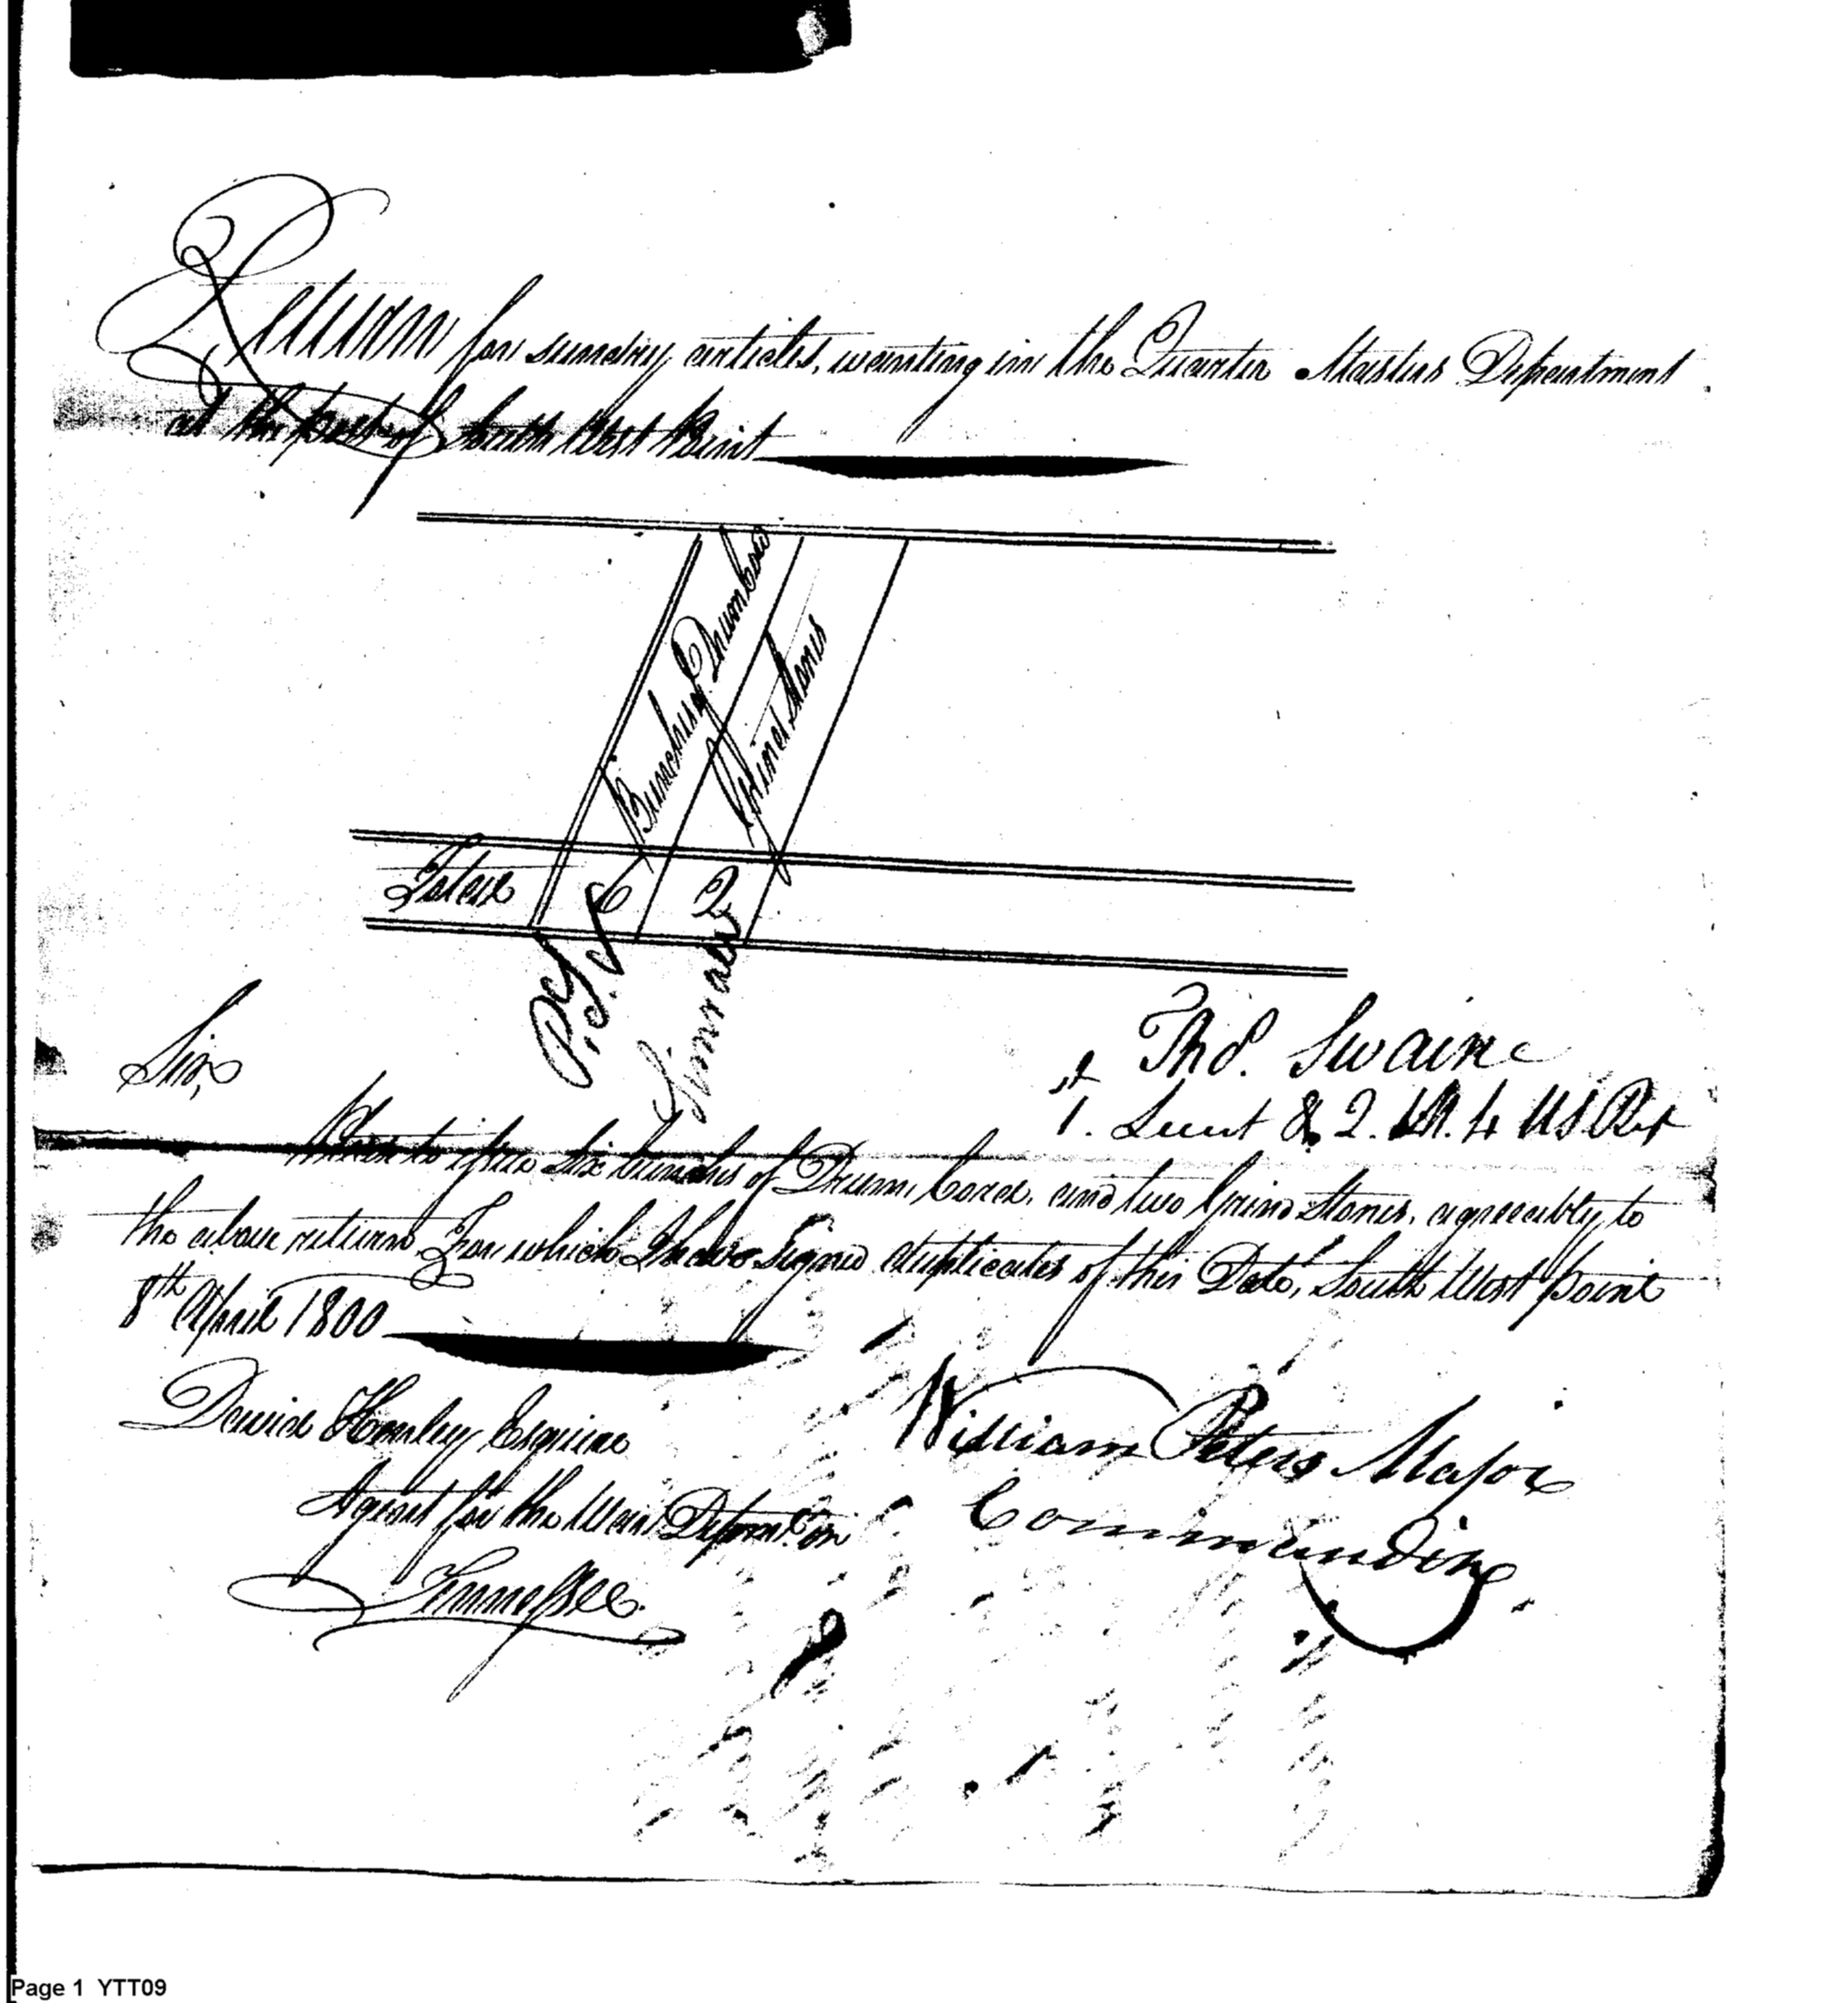 Return for sundry articles, wanting in the Quarter Masters Department
at the post of South West Point
Bunches of Drum Cord
Grind Stones
Total 6 2
Thos. Swaine
1st Lieut & Q. M. 4 US Regt
Sir,
Please to issue six bunches of Drum Cord, and two Grind Stones, agreeably to
the above return, For which I have Signed duplicates of this Date, South West point
8th April 1800
David Henley Esquire
Agent for the War Deptmt. in
Tennessee.
William Peters Major
Commanding
Page 1 YTT09